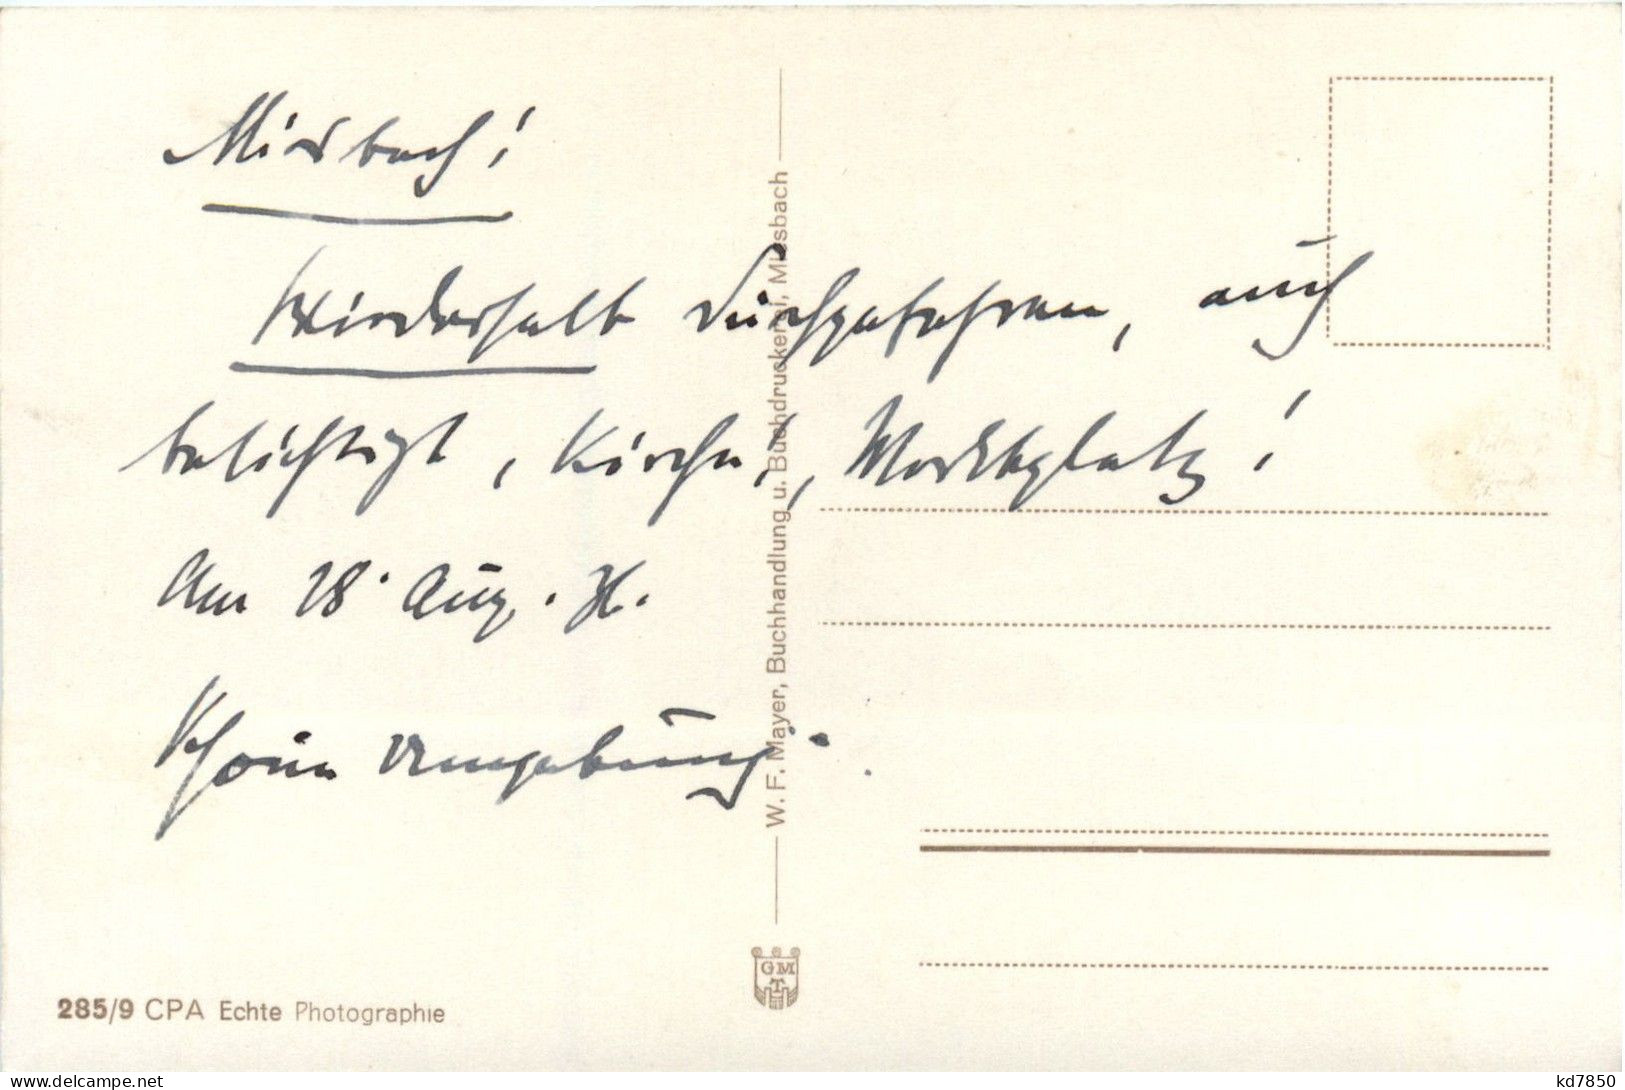 Miesbach!
Wiederholt durchgefahren, auch
besichtigt, Kirche, Marktplatz!
Am 28. Aug.
Schöne Umgebung.
W. F. Mayer, Buchhandlung u. Buchdruckerei, Miesbach
GMT
285/9 CPA Echte Photographie
www.delcampe.net
kd7850